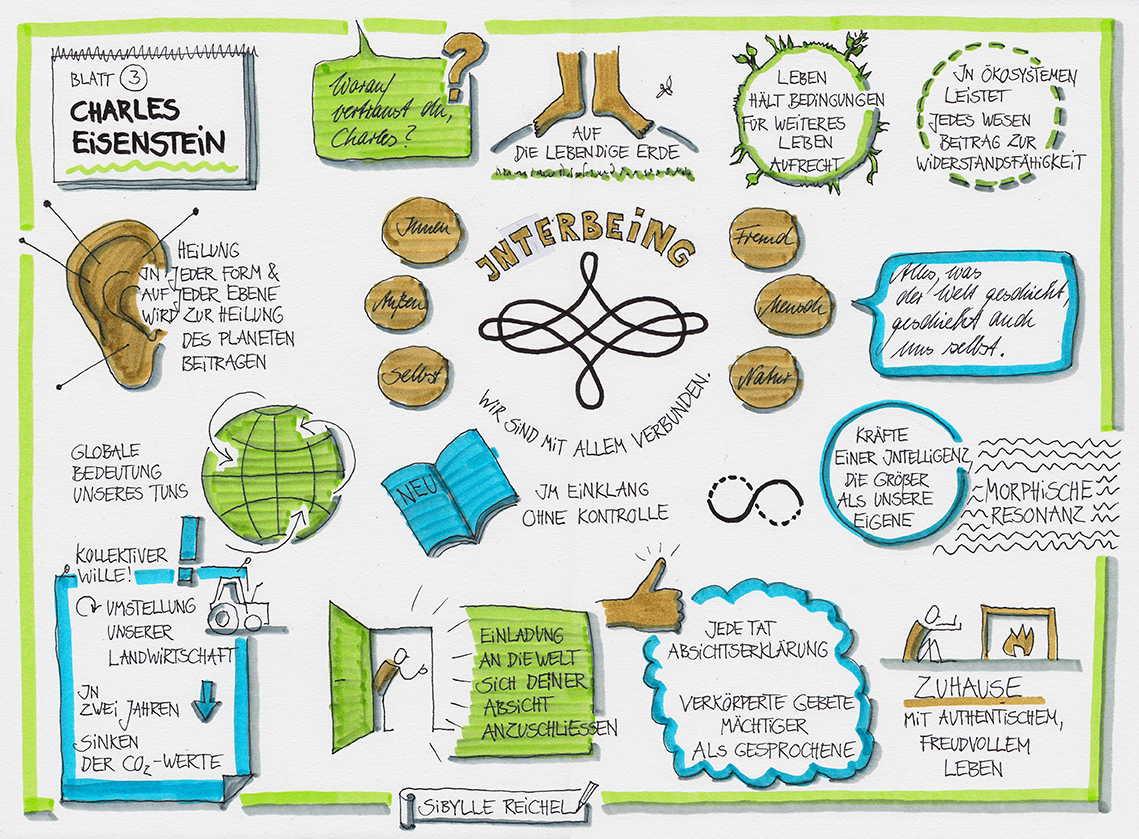 BLATT 3
CHARLES
EISENSTEIN
Worauf
vertraust du,
Charles?
?
AUF
DIE LEBENDIGE ERDE
LEBEN
HÄLT BEDINGUNGEN
FÜR WEITERES
LEBEN
AUFRECHT
IN ÖKOSYSTEMEN
LEISTET
JEDES WESEN
BEITRAG ZUR
WIDERSTANDSFÄHIGKEIT
HEILUNG
IN JEDER FORM &
AUF JEDER EBENE
WIRD ZUR HEILUNG
DES PLANETEN
BEITRAGEN
Innen
Außen
Selbst
INTERBEING
Fremd
Mensch
Natur
WIR SIND MIT ALLEM VERBUNDEN.
Alles, was
der Welt geschieht,
geschieht auch
uns selbst.
GLOBALE
BEDEUTUNG
UNSERES TUNS
NEU
IM EINKLANG
OHNE KONTROLLE
KRÄFTE
EINER INTELLIGENZ,
DIE GRÖßER
ALS UNSERE
EIGENE
MORPHISCHE
RESONANZ
KOLLEKTIVER
WILLE!
UMSTELLUNG
UNSERER
LANDWIRTSCHAFT
IN
ZWEI JAHREN
SINKEN
DER CO₂-WERTE
EINLADUNG
AN DIE WELT
SICH DEINER
ABSICHT
ANZUSCHLIESSEN
JEDE TAT
ABSICHTSERKLÄRUNG
VERKÖRPERTE GEBETE
MÄCHTIGER
ALS GESPROCHENE
ZUHAUSE
MIT AUTHENTISCHEM,
FREUDVOLLEM
LEBEN
SIBYLLE REICHEL